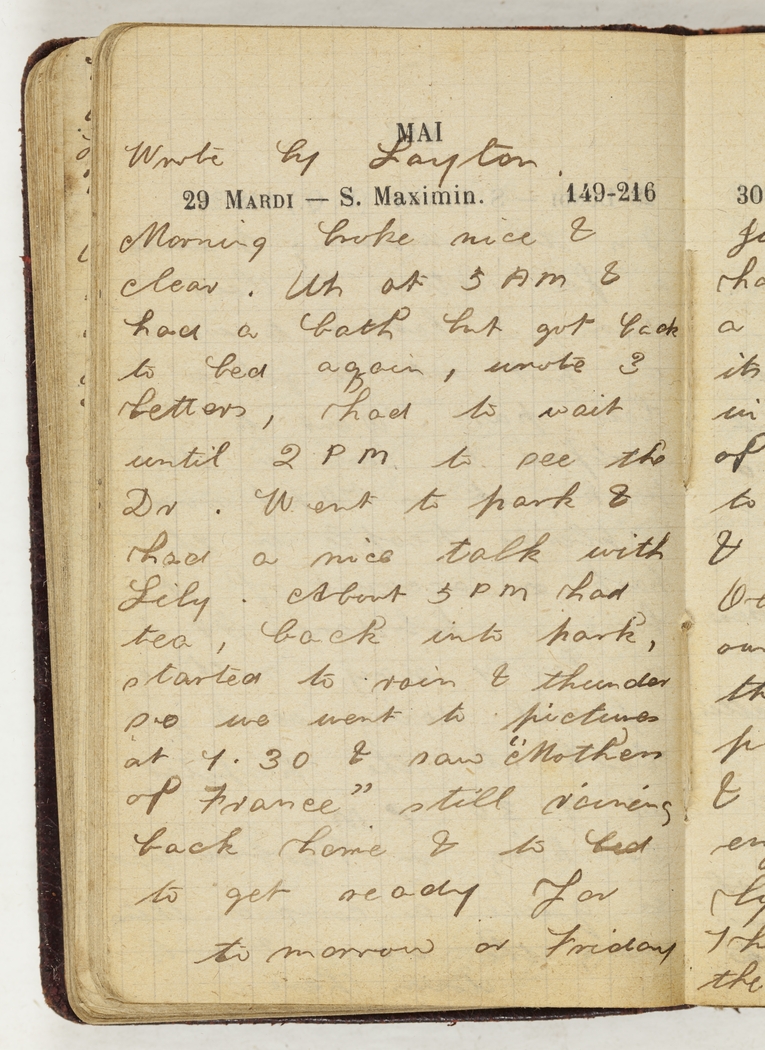 MAI
Wrote by Layton.
29 MARDI — S. Maximin. 149-216
Morning broke nice &
clear. Up at 5 AM &
had a bath but got back
to bed again, wrote 3
letters, had to wait
until 2 PM to see the
Dr. Went to park &
had a nice talk with
Lily. About 5 PM had
tea, back into park,
started to rain & thunder
so we went to pictures
at 7.30 & saw "Mothers
of France" still raining
back home & to bed
to get ready for
to morrow or Friday
30
ha
a
its
in
of
to
&
our
th
p
&
en
the